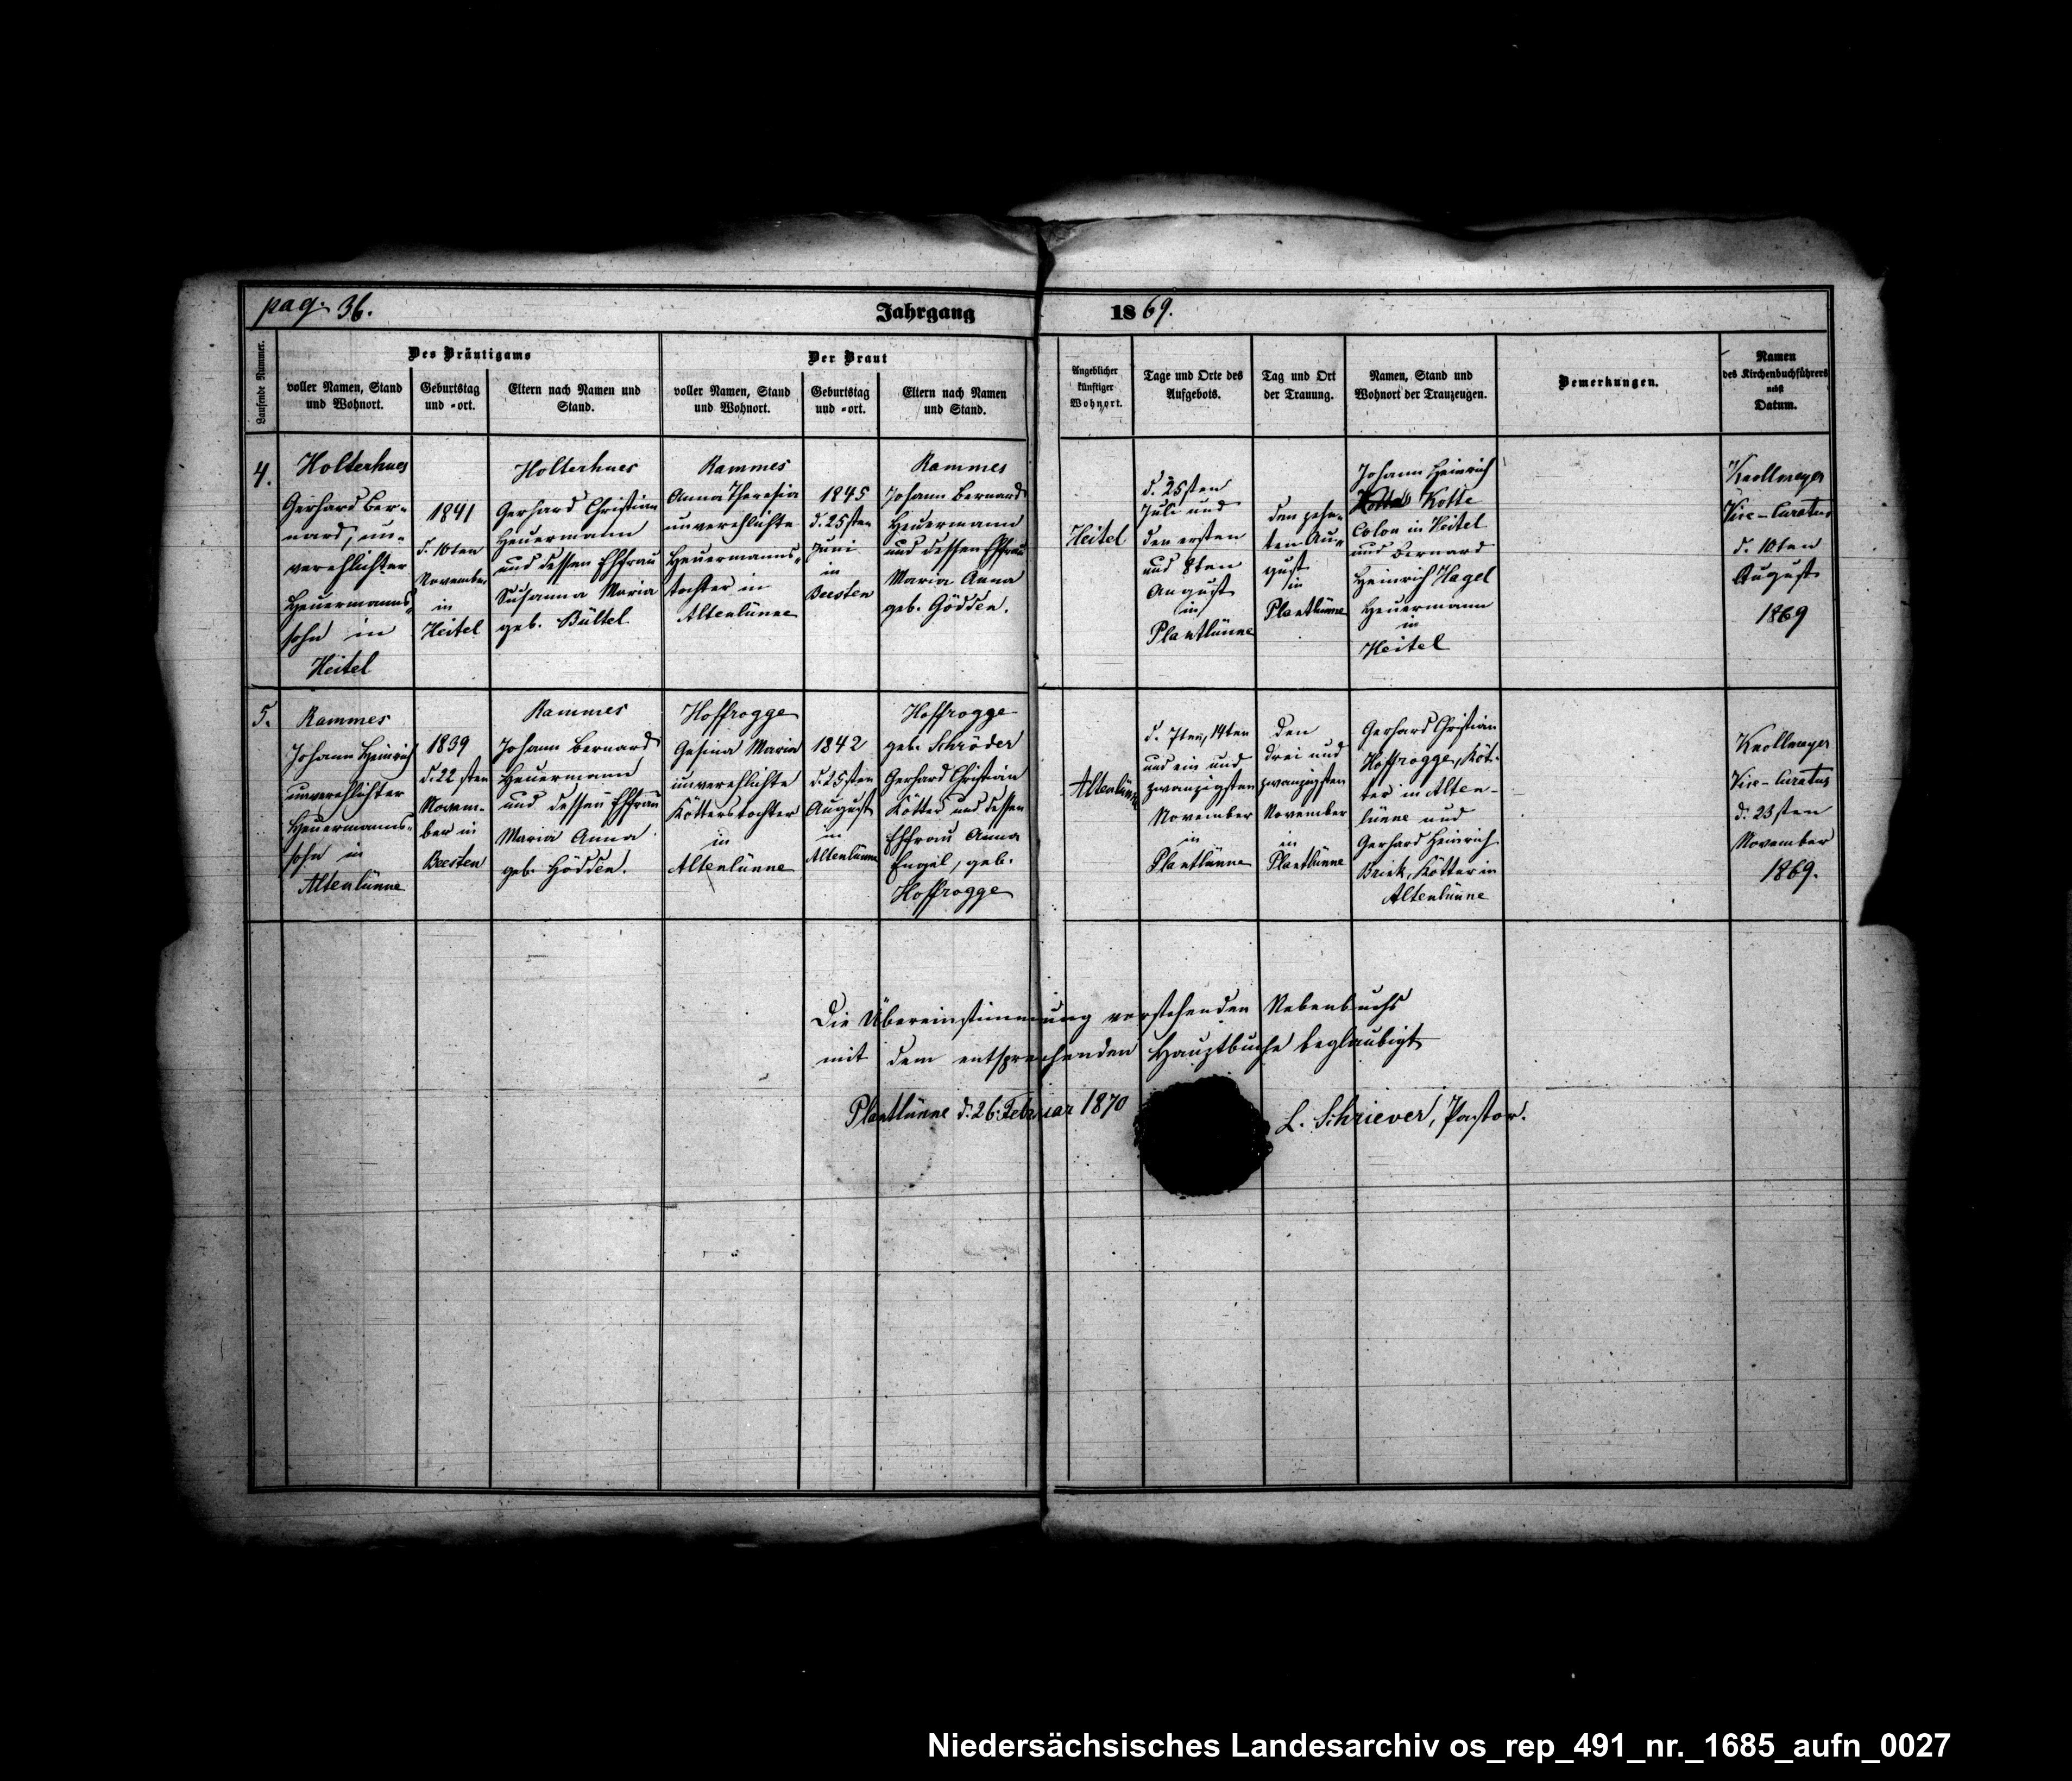 pag. 36.
Jahrgang 1869.
Laufende Nummer.
Des Bräutigams
voller Namen, Stand
und Wohnort.
Geburtstag
und =ort.
Eltern nach Namen und
Stand.
Der Braut
voller Namen, Stand
und Wohnort.
Geburtstag
und =ort.
Eltern nach Namen
und Stand.
Angeblicher
künftiger
Wohnort.
Tage und Orte des
Aufgebots.
Tag und Ort
der Trauung.
Namen, Stand und
Wohnort der Trauzeugen.
Bemerkungen.
Namen
des Kirchenbuchführers
nebst
Datum.
4.
Holterhues
Gerhard Ber-
nard, un-
verehlichter
Heuermanns-
sohn in
Heitel
1841
d. 10ten
November
in
Heitel
Holterhues
Gerhard Christian
Heuermann
und dessen Ehefrau
Susanna Maria
geb. Bültel
Rammes
Anna Theresia
unverehlichte
Heuermanns-
tochter in
Altenlünne
1845
d. 25sten
Juni
in
Beesten
Rammes
Johann Bernard
Heuermann
und dessen Ehefrau
Maria Anna
geb. Gödden.
Heitel
d. 25sten
Juli und
den ersten
und 8ten
August
in
Plantlünne
den zehn-
ten Au-
gust
in
Plantlünne
Johann Heinrich
Kotte
Colon in Heitel
und Bernard
Heinrich Hagel
Heuermann
in
Heitel
Knollmeyer
Vice-Curatus
d. 10ten
August
1869
5.
Rammes
Johann Heinrich
unverehlichter
Heuermanns-
sohn in
Altenlünne
1839
d. 22sten
Novem-
ber in
Beesten
Rammes
Johann Bernard
Heuermann
und dessen Ehefrau
Maria Anna
geb. Hödden.
Hoffrogge
Gesina Maria
unverehlichte
Kötterstochter
in
Altenlünne
1842
d. 25sten
August
in
Altenlünne
Hoffrogge
geb. Schröder
Gerhard Christian
Kötter und dessen
Ehefrau Anna
Engel, geb.
Hoffrogge
Altenlünne
d. 7ten, 14ten
und ein und
zwanzigsten
November
in
Plantlünne
den
drei und
zwanzigsten
November
in
Plantlünne
Gerhard Christian
Hoffrogge, Köt-
ter in Alten-
lünne und
Gerhard Heinrich
Brink, Kötter in
Altenlünne
Knollmeyer
Vice-Curatus
d. 23sten
November
1869.
Die Übereinstimmung vorstehenden Nebenbuchs
mit dem entsprechenden Hauptbuche beglaubigt
Plantlünne d. 26. Februar 1870
L. Schriever, Pastor.
Niedersächsisches Landesarchiv os_rep_491_nr._1685_aufn_0027